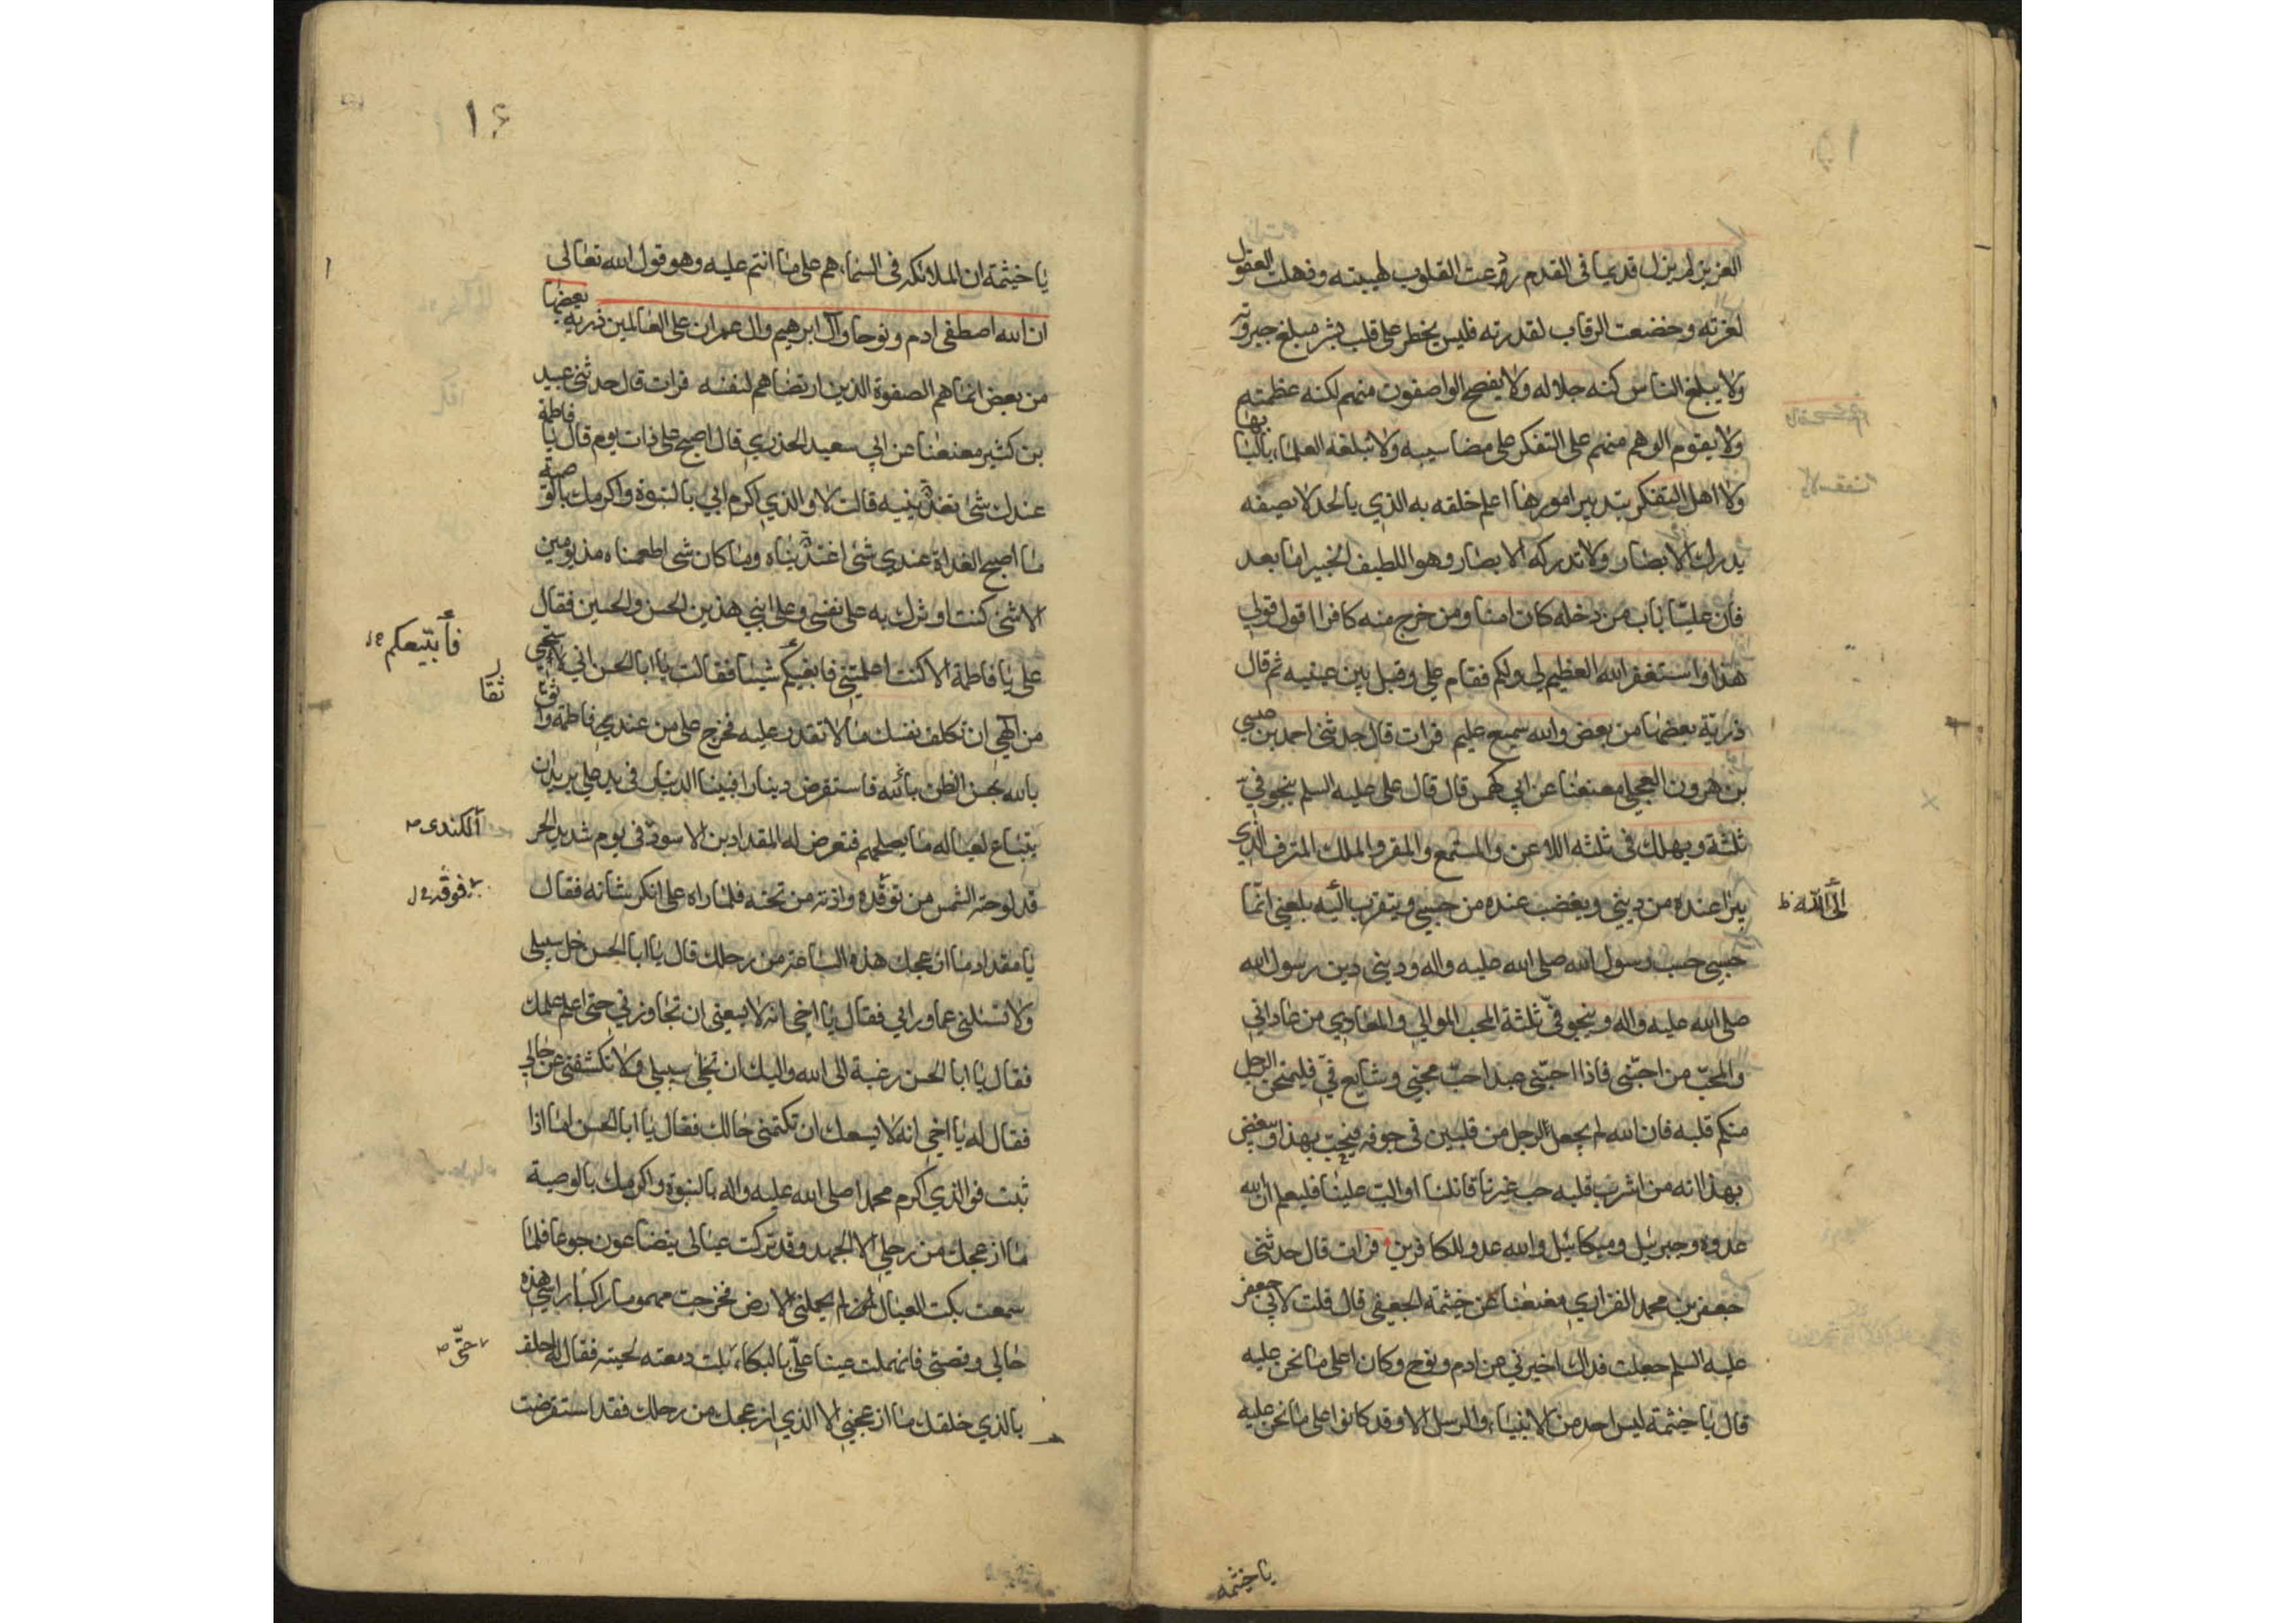 العزيز لم يزل قديما في القدم ردعت القلوب لهيبته وذهلت العقول
لعزته وخضعت الرقاب لقدرته فليس يخطر على قلب بشر مبلغ جبروته
ولا يبلغ الناس كنه جلاله ولا يفصح الواصفون منهم لكنه عظمتهم
ولا يقوم الوهم منهم على التفكر على مضا سببه ولا تبلغه العلماء بالبابها
ولا اهل التفكر بتدبير امورها اعلم خلقه به الذي بالحد لا يصفه
يدرك الابصار ولا تدركه الابصار وهو اللطيف الخبير اما بعد
فان عليا باب من دخله كان امنا ومن خرج منه كافرا اقول قولي
هذا واستغفر الله العظيم لي ولكم فقام علي وقبل بين عينيه ثم قال
ذرية بعضها من بعض والله سميع عليم فرات قال حدثني احمد بن عيسى
بن هرون العجلي معنعنا عن ابي كهمس قال قال علي عليه السلم ينجو فيّ
ثلثة ويهلك فى ثلثه اللاعن والمستمع والمقر والملك المترف الذي
يبرا عنده من ديني ويغضب عنده من حسبي ويتقرب اليه بلعني انّما
الى الله ظ
حسبي حسب رسول الله صلى الله عليه واله وديني دين رسول الله
صلى الله عليه واله وينجو فيّ ثلثة المحب الموالي والمعادي من عاداني
والمحبّ من احبّنى فاذا احبّنى عبد احبّ محبّي وشايع فيّ فليمتحن الرجل
منكم قلبه فان الله لم يجعل لرجل من قلبين في جوفه فيحبّ بهذا ويبغض
بهذا انه من اشرب قلبه حب غيرنا قاتلنا او الب علينا فليعلم ان الله
عدوه وجبرئيل وميكائيل والله عدو للكافرين فرات قال حدثنى
جعفر بن محمد الفزاري معنعنا عن خيثمة الجعفي قال قلت لابي جعفر
عليه السلم جعلت فداك اخبرني عن ادم ونوح وكان اعلى ما نحن عليه
قال يا خيثمة ليس احد من الانبياء والرسل الا وقد كانوا على ما نحن عليه
يا خيثمه
١٦
يا خيثمة ان الملائكة فى السماء هم على ما انتم عليه وهو قول الله تعالى
ان الله اصطفى ادم ونوحا وآل ابرهيم وال عمران على العالمين ذرية بعضها
من بعض انما هم الصفوة الذين ارتضاهم لنفسه فرات قال حدثنى عبيد
بن كثير معنعنا عن ابي سعيد الخدري قال اصبح علي ذات يوم قال يا فاطمة
عندك شئ تغذينيه قالت لا والذي اكرم ابي بالنبوة واكرمك بالوصية
ما اصبح الغداة عندي شئ اغذيناه وما كان شى اطعمناه مذ يومين
الا شئ كنت اوثرك به على نفسى وعلى ابني هذين الحسن والحسين فقال
علي يا فاطمة الا كنت اعلمتني فابغيكم شيئا فقالت يا ابا الحسن اني لاستحيي
فأبتيعكم
من الهي ان تكلف نفسك ما لا تقدر عليه فخرج علي من عندي فاطمة واثق
بالله بحسن الظن بالله فاستقرض دينارا فبينا الدينار فى يد علي يريد ان
يتباع لعياله ما يصلحهم فتعرض له المقداد بن الاسود فى يوم شديد الحر
الكندى ص
قد لوحته الشمس من توقده واذته من تحته فلما راه علي انكر شانه فقال
فوقه
يا مقداد ما ازعجك هذه الساعة من رحلك قال يا ابا الحسن خل سبيلى
ولا تسئلنى عما ورائي فقال يا اخي انه لا يسعنى ان تجاوزني حتى اعلم علمك
فقال يا ابا الحسن رغبة الى الله واليك ان تخلي سبيلي ولا تكشفني عن حالي
فقال له يا اخي انه لا يسعك ان تكتمني حالك فقال يا ابا الحسن اما اذا
ثبت فوالذي اكرم محمدا صلى الله عليه واله بالنبوة واكرمك بالوصية
ما ازعجك من رحلي الا الجهد وقد تركت عيالى يتضاعون جوعا فلما
سمعت بكت العيال لم يحملنى الارض فخرجت مهموما راكبا راسي هذه
حالي وقصتى فانهملت عينا عليّ بالبكاء بلت دمعته لحيته فقال له احلف
حتّى ص
بالذي خلقك ما ازعجني الا الذي ازعجك من رحلك فقد استقرضت